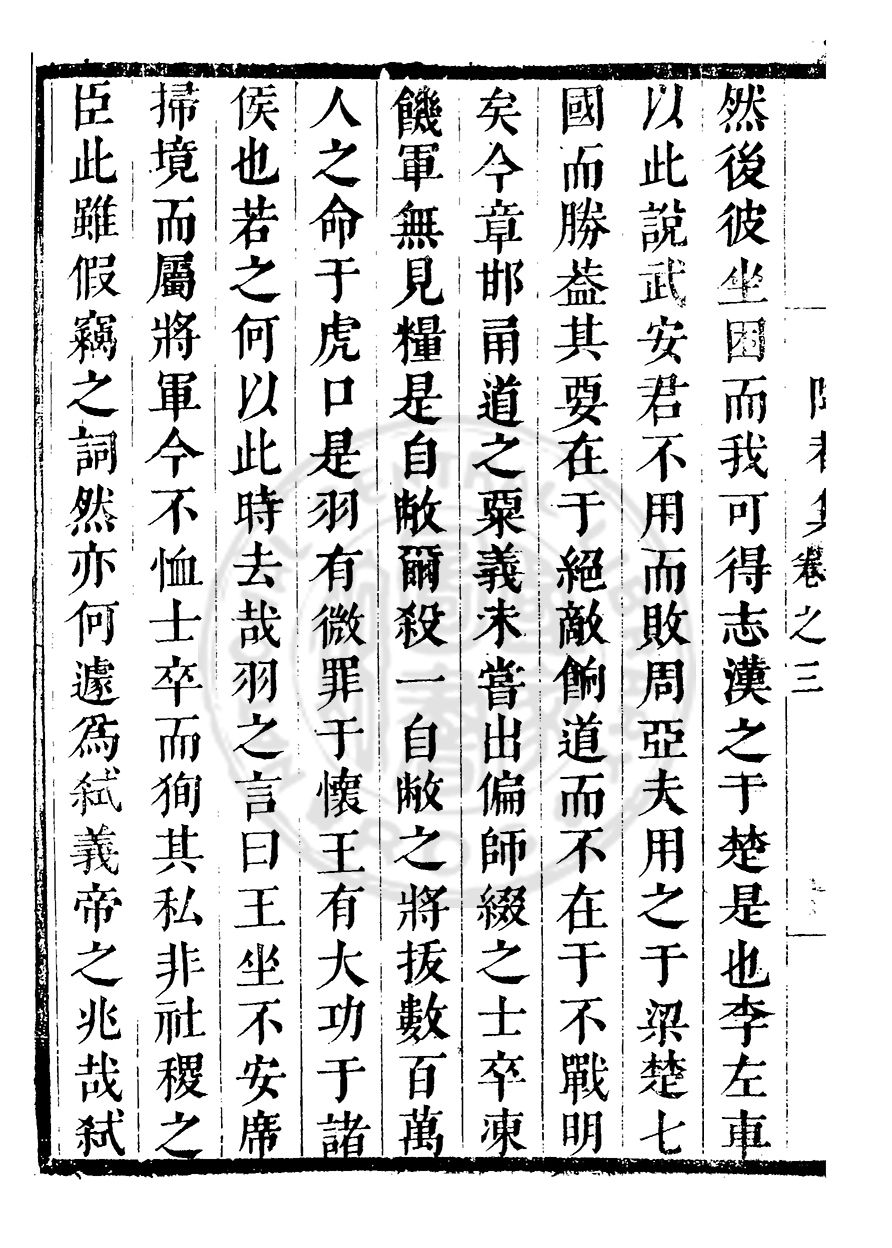 卷之三
然後彼坐困而我可得志漢之于楚是也李左車
以此說武安君不用而敗周亞夫用之于梁楚七
國而勝葢其要在于絕敵餉道而不在于不戰明
矣今章邯甬道之粟義未嘗出偏師綴之士卒凍
饑軍無見糧是自敝爾殺一自敝之將拔數百萬
人之命于虎口是羽有微罪于懷王有大功于諸
侯也若之何以此時去哉羽之言曰王坐不安席
掃境而屬將軍今不恤士卒而狥其私非社稷之
臣此雖假竊之詞然亦何遽爲弒義帝之兆哉弒